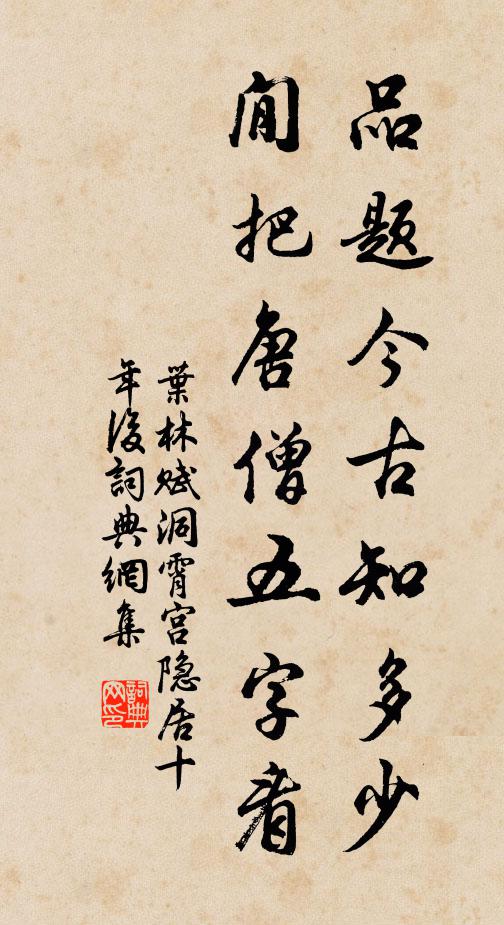 品题今古知多少
閒把唐僧五字看
葉林赋洞霄宫隐居十
年後詞典網集
詞典网印